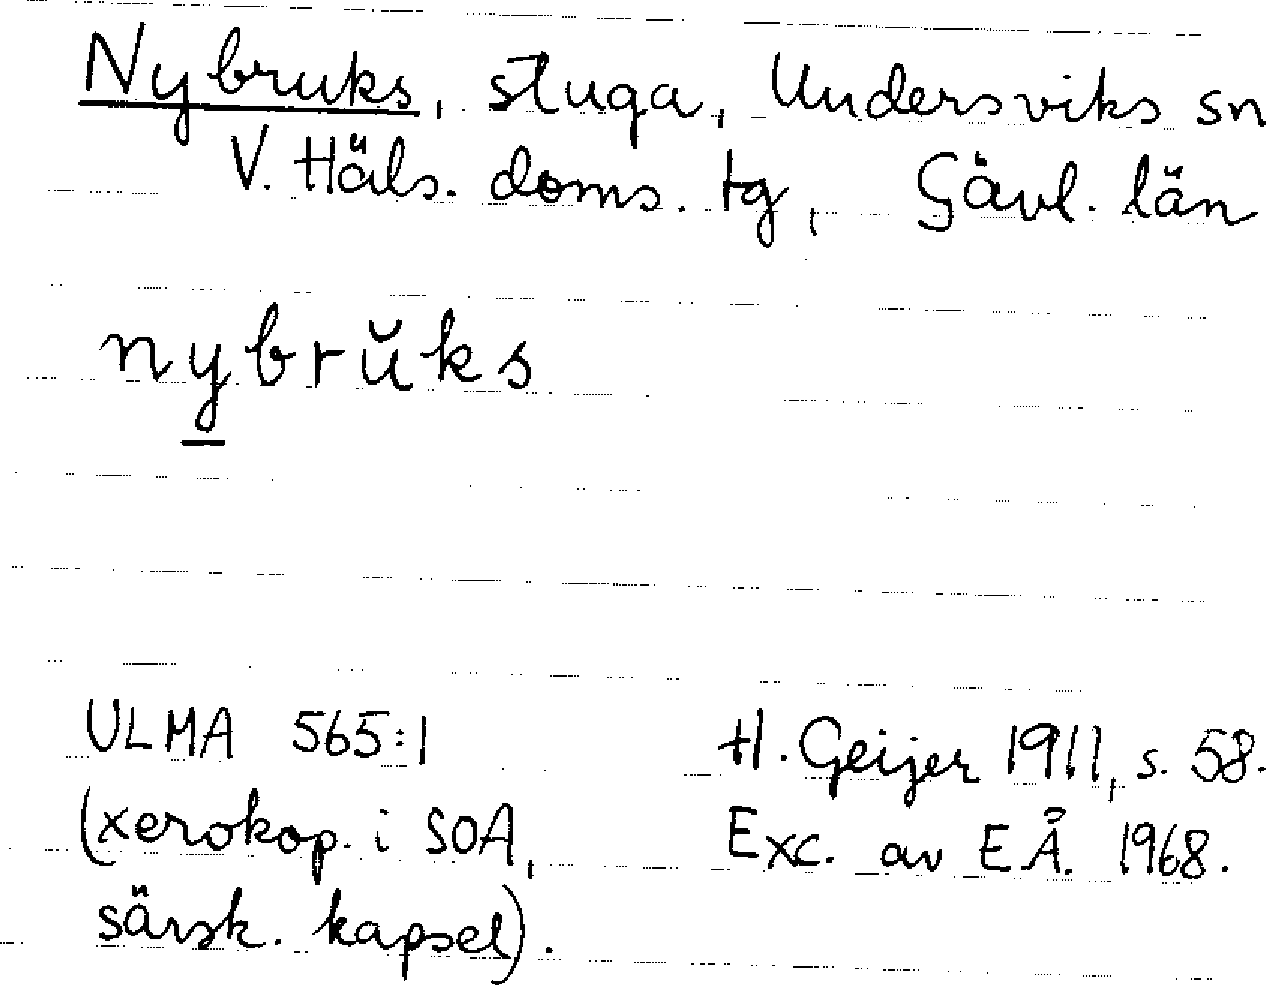 Nybruks, stuga, Undersviks sn
V. Häls. doms. tg, Gävl. län
nybrŭks
ULMA 565:1 H. Geijer 1911, s. 58.
(xerokop. i SOA, Exc. av EÅ. 1968.
särsk. kapsel).